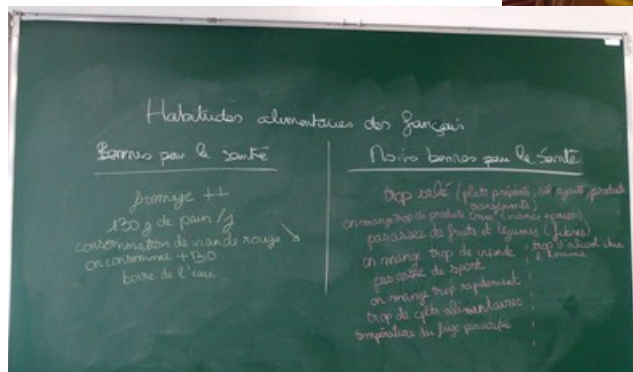 Habitudes alimentaires des français
Bonnes pour la santé
fromage ++
130 g de pain/j
consommation de viande rouge ↘
on consomme + BIO
boire de l'eau
Moins bonnes pour la santé
trop salé (plats préparés, sel ajouté, produits
transformés)
on mange trop de produits crus (viande
pas assez de fruits et légumes (fibres)
on mange trop de viande
pas assez de sport
on mange trop rapidement
trop de cplts alimentaires
température du frigo
trop d'alcool chez
l'homme